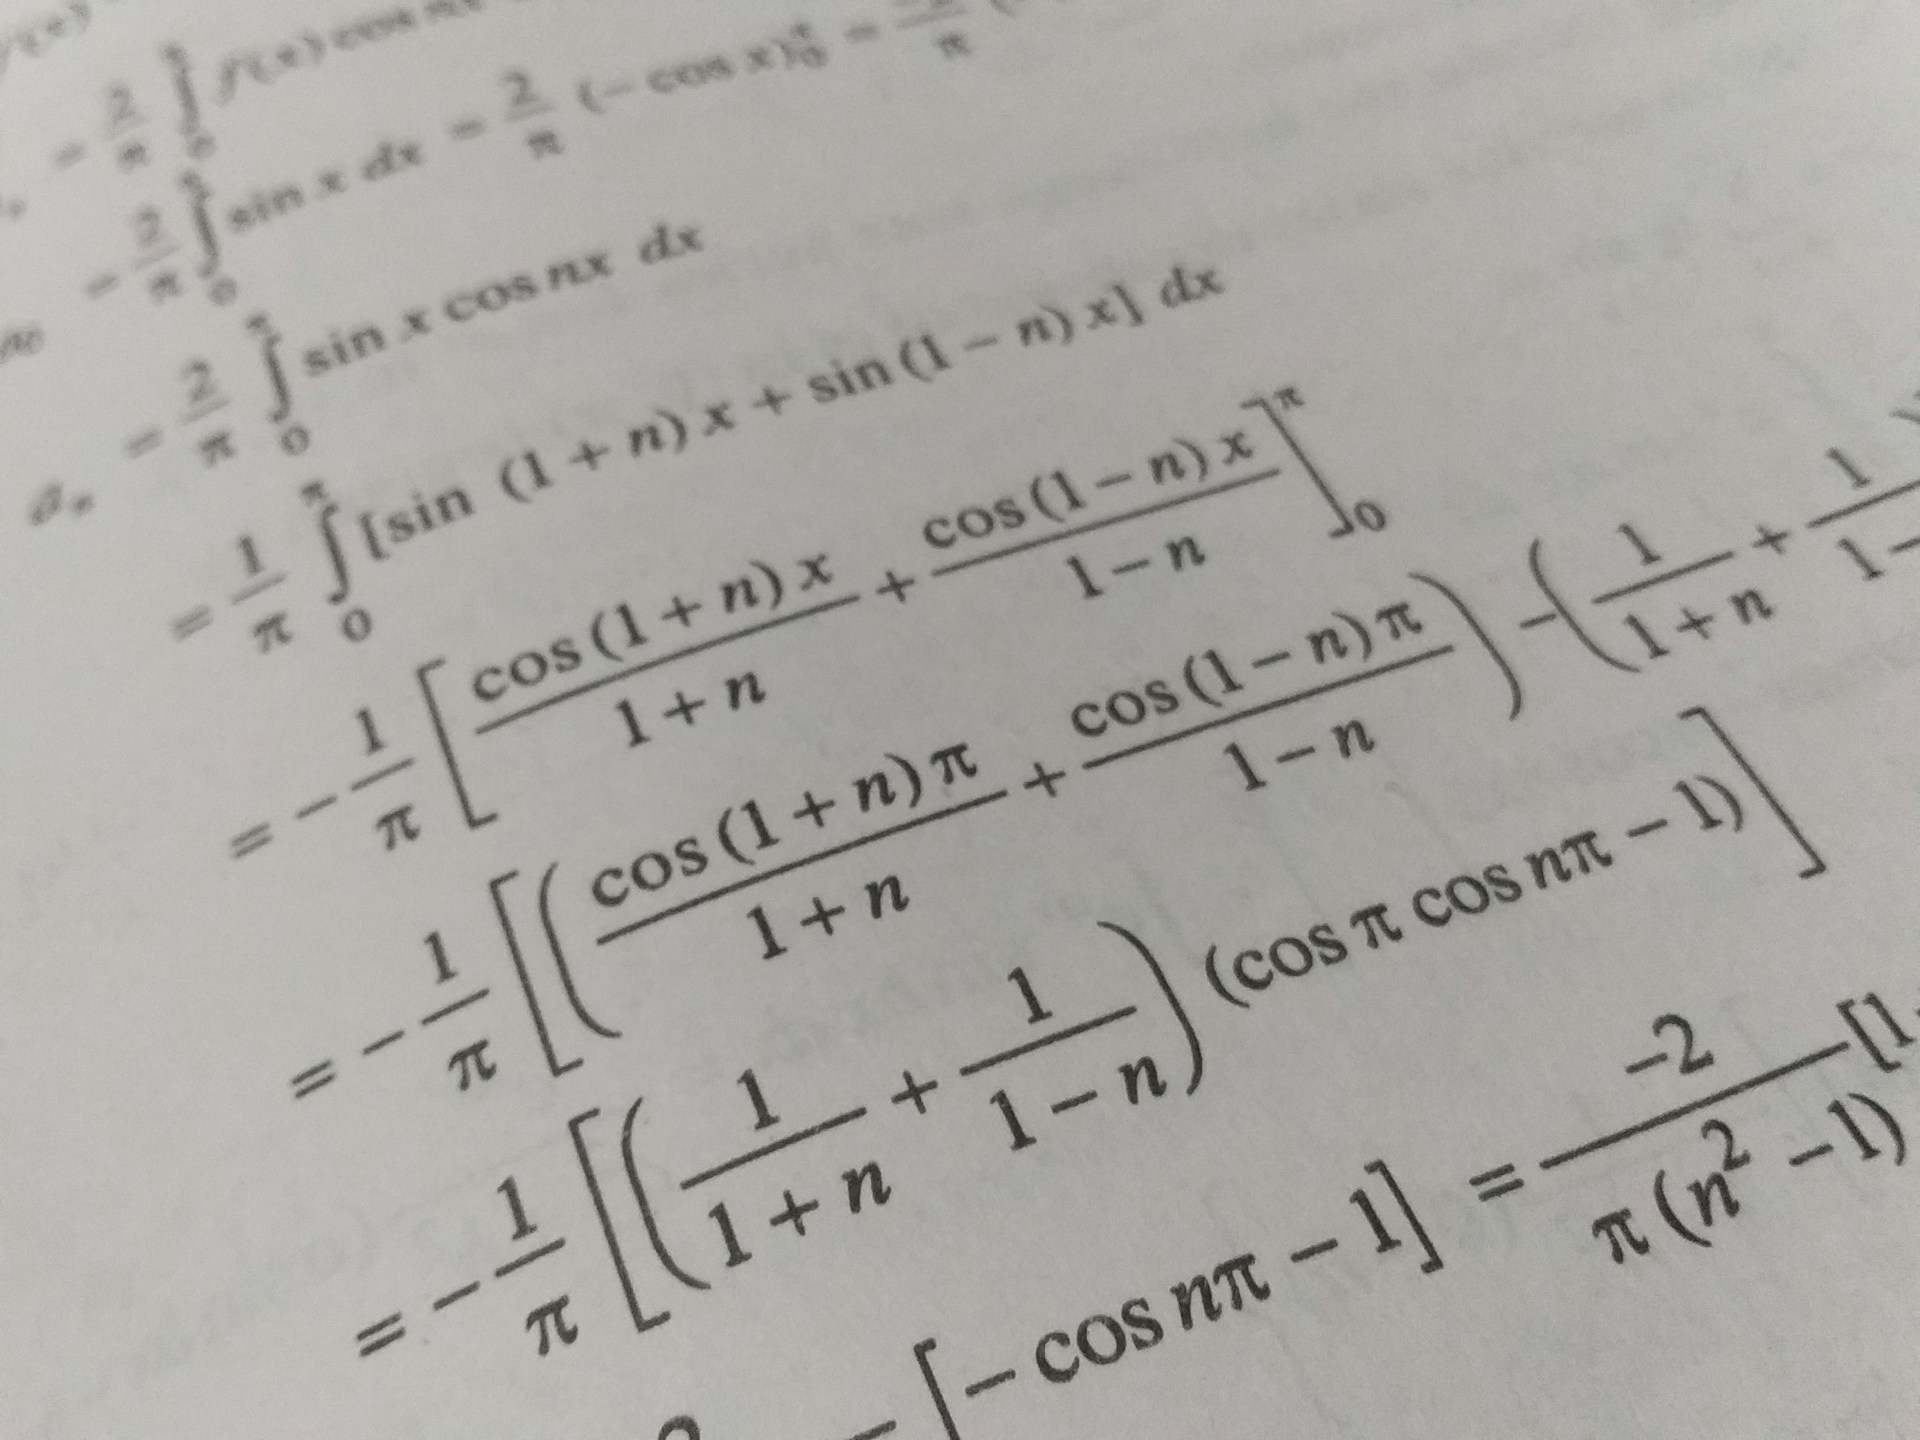 = 2/π ∫₀^π f(x) cos
= 2/π ∫₀^π sin x dx = 2/π (− cos x)₀^π =
aₙ = 2/π ∫₀^π sin x cos nx dx
= 1/π ∫₀^π [sin (1 + n) x + sin (1 − n) x] dx
= − 1/π [cos (1 + n) x / 1 + n + cos (1 − n) x / 1 − n]₀^π
= − 1/π [(cos (1 + n) π / 1 + n + cos (1 − n) π / 1 − n) − (1 / 1 + n + 1 / 1 −
= − 1/π [(1 / 1 + n + 1 / 1 − n) (cos π cos nπ − 1)]
[− cos nπ − 1] = −2 / π (n² − 1) [1